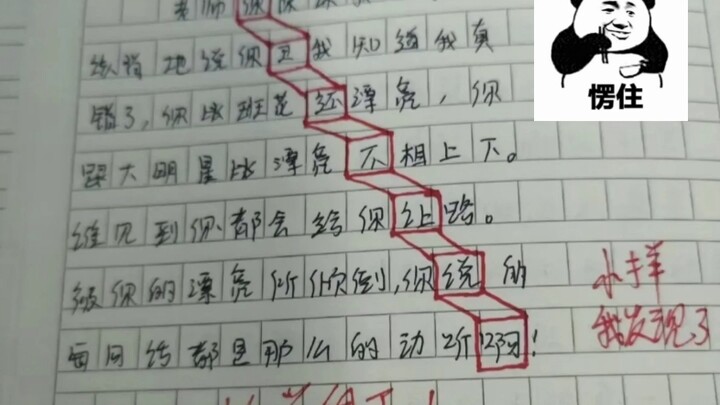 老师你
我知道我真
错了，你比班花还漂亮，你
跟大明星比漂亮不相上下。
谁见到你都会给你让路。
被你的漂亮所倾倒，你说的
每句话都是那么的动听啊！
小样
我发现了
愣住